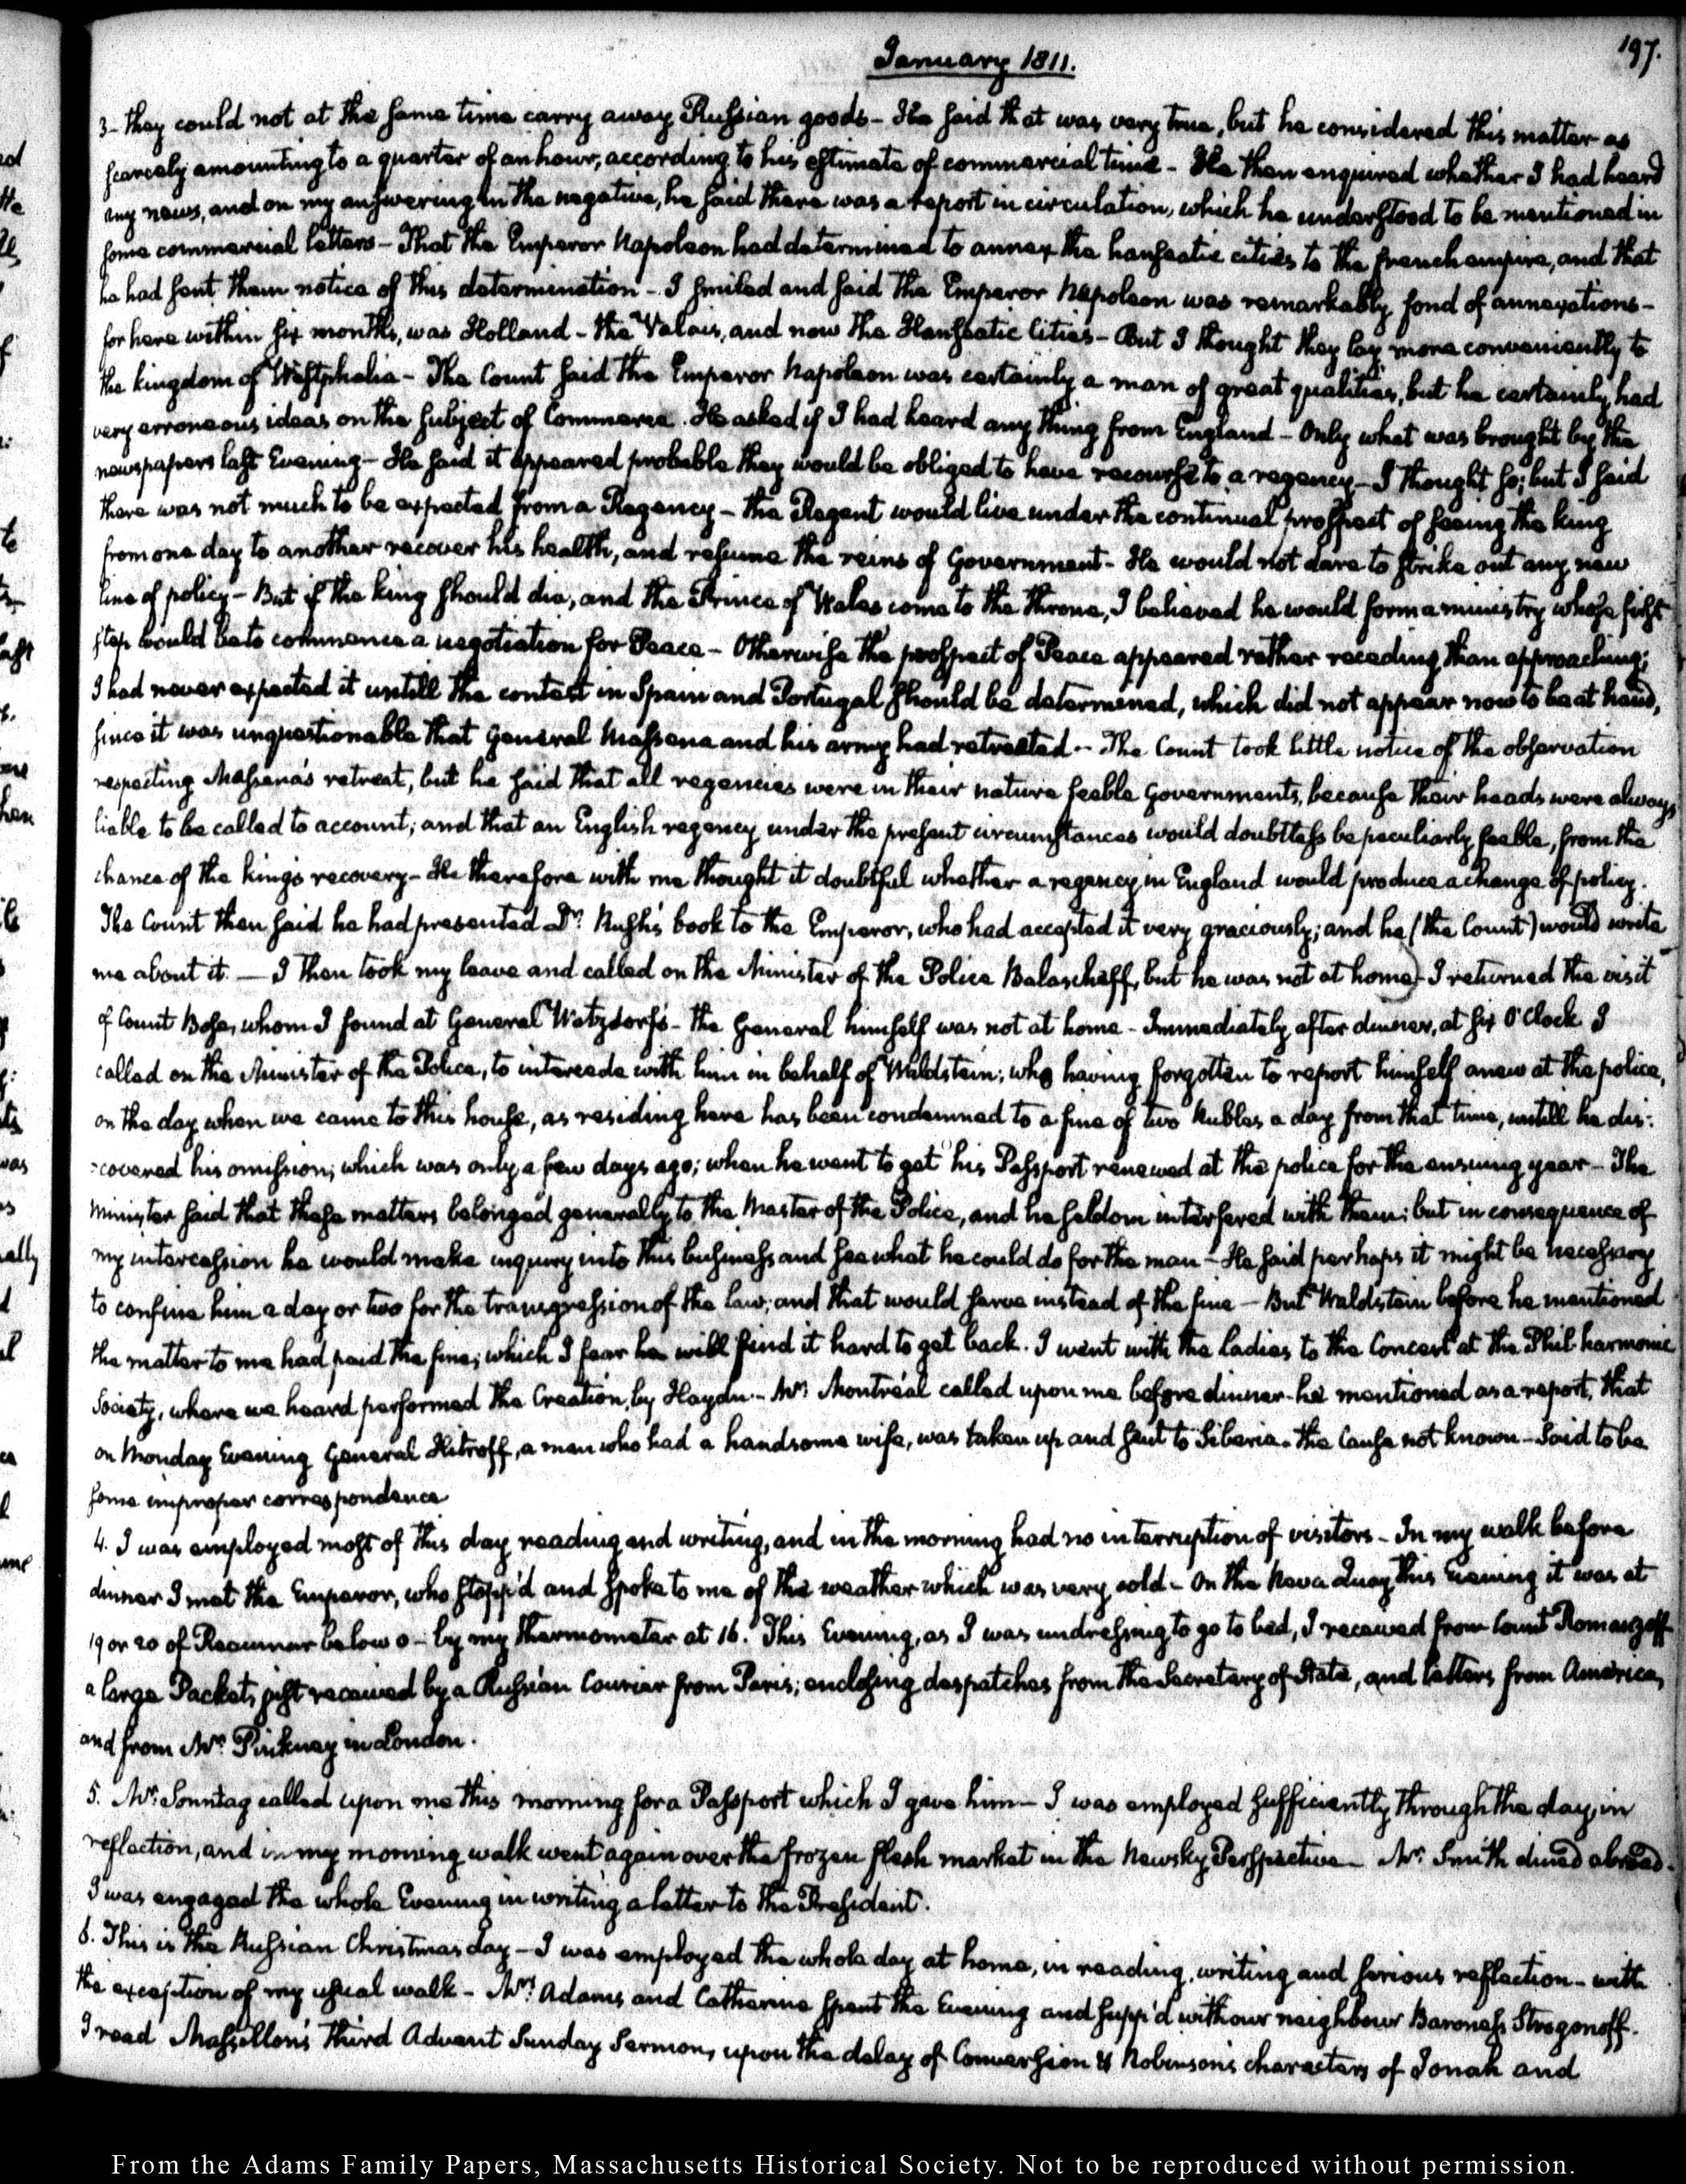 January 1811.
197.
3- they could not at the same time carry away Russian goods - He said that was very true, but he considered this matter as
scarcely amounting to a quarter of an hour, according to his estimate of commercial time - He then enquired whether I had heard
any news, and on my answering in the negative, he said there was a report in circulation, which he understood to be mentioned in
some commercial letters - That the Emperor Napoleon had determined to annex the hanseatic cities to the french empire, and that
he had sent them notice of this determination - I smiled and said the Emperor Napoleon was remarkably fond of annexations -
for here within six months, was Holland - the Valais, and now the Hanseatic Cities - But I thought they lay more conveniently to
the kingdom of Westphalia - The Count said the Emperor Napoleon was certainly a man of great qualities, but he certainly had
very erroneous ideas on the subject of Commerce. He asked if I had heard any thing from England - Only what was brought by the
newspapers last Evening - He said it appeared probable they would be obliged to have recourse to a regency - I thought so; but I said
there was not much to be expected from a Regency - the Regent would live under the continual prospect of seeing the king
from one day to another recover his health, and resume the reins of Government - He would not dare to strike out any new
line of policy - But if the king should die, and the Prince of Wales come to the throne, I believed he would form a ministry whose first
step would be to commence a negotiation for Peace - Otherwise the prospect of Peace appeared rather receding than approaching;
I had never expected it untill the contest in Spain and Portugal should be determined, which did not appear now to be at hand,
since it was unquestionable that General Massena and his army had retreated - The Count took little notice of the observation
respecting Massena's retreat, but he said that all regencies were in their nature feeble Governments, because their heads were always
liable to be called to account; and that an English regency under the present circumstances would doubtless be peculiarly feeble, from the
chance of the king's recovery - He therefore with me thought it doubtful whether a regency in England would produce a change of policy.
The Count then said he had presented Dr. Rush's book to the Emperor, who had accepted it very graciously; and he (the Count) would write
me about it. - I then took my leave and called on the Minister of the Police Balascheff, but he was not at home) - I returned the visit
of Count Bose, whom I found at General Watzdorf's - the General himself was not at home - Immediately after dinner, at six O'Clock I
called on the Minister of the Police, to intercede with him in behalf of Waldstein; who having forgotten to report himself anew at the police,
on the day when we came to this house, as residing here has been condemned to a fine of two Rubles a day from that time, untill he dis:
:covered his omission; which was only a few days ago; when he went to get his Passport renewed at the police for the ensuing year - The
Minister said that these matters belonged generally to the Master of the Police, and he seldom interfered with them: but in consequence of
my intercession he would make inquiry into this business and see what he could do for the man - He said perhaps it might be necessary
to confine him a day or two for the transgression of the law; and that would serve instead of the fine - But Waldstein before he mentioned
the matter to me had paid the fine; which I fear he will find it hard to get back. I went with the ladies to the Concert at the Philharmonic
Society, where we heard performed the Creation, by Haydn - Mr. Montréal called upon me before dinner - he mentioned as a report, that
on Monday Evening General Hitroff, a man who had a handsome wife, was taken up and sent to Siberia - the cause not known - Said to be
some improper correspondence
4. I was employed most of this day reading and writing, and in the morning had no interruption of visitors - In my walk before
dinner I met the Emperor, who stopp'd and spoke to me of the weather which was very cold - On the Neva Quay this Evening it was at
19 or 20 of Reaumur below 0 - by my thermometer at 16. This Evening, as I was undressing to go to bed, I received from Count Romanzoff
a large Packet, just received by a Russian Courier from Paris; enclosing despatches from the Secretary of State, and letters from America,
and from Mr. Pinkney in London.
5. Mr. Sonntag called upon me this morning for a Passport which I gave him - I was employed sufficiently through the day, in
reflection, and in my morning walk went again over the frozen flesh market in the Newsky Perspective - Mr. Smith dined abroad.
I was engaged the whole Evening in writing a letter to the President.
6. This is the Russian Christmas day - I was employed the whole day at home, in reading, writing and serious reflection - with
the exception of my usual walk - Mrs. Adams and Catherine spent the Evening and supp'd with our neighbour Baroness Strogonoff.
I read Massillon's third Advent Sunday Sermon, upon the delay of Conversion & Robinson's characters of Jonah and
From the Adams Family Papers, Massachusetts Historical Society. Not to be reproduced without permission.